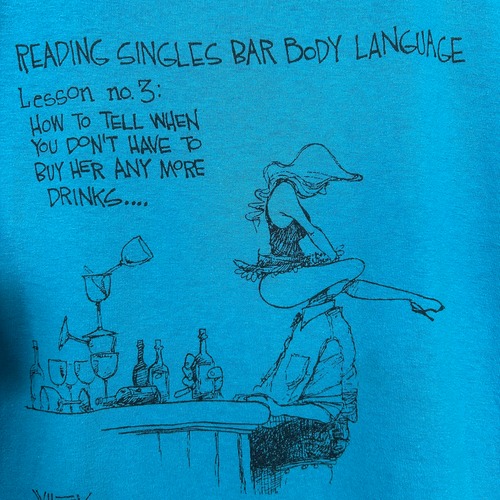 READING SINGLES BAR BODY LANGUAGE
Lesson no. 3:
HOW TO TELL WHEN
YOU DON'T HAVE TO
BUY HER ANY MORE
DRINKS....